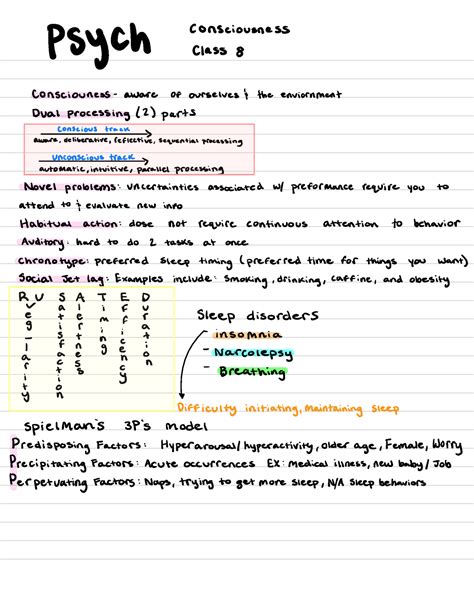 Psych
Consciousness
Class 8
Consciousness - aware of ourselves & the enviornment
Dual processing (2) parts
Conscious track
aware, deliberative, reflective, sequential processing
Unconscious track
automatic, intuitive, parallel processing
Novel problems: uncertainties associated w/ preformance require you to
attend to & evaluate new info
Habitual action: dose not require continuous attention to behavior
Auditory: hard to do 2 tasks at once
chronotype: preferred sleep timing (preferred time for things you want)
Social Jet lag: Examples include: smoking, drinking, caffine, and obesity
RU SATED
Reg_larity
Satisfaction
Alertness
Timing
Efficency
Duration
Sleep disorders
- insomnia
- Narcolepsy
- Breathing
Difficulty initiating, maintaining sleep
spielman's 3P's model
Predisposing Factors: Hyperarousal/hyperactivity, older age, Female, Worry
Precipitating Factors: Acute occurrences EX: medical illness, new baby/Job
Perpetuating Factors: Naps, trying to get more sleep, N/A sleep behaviors